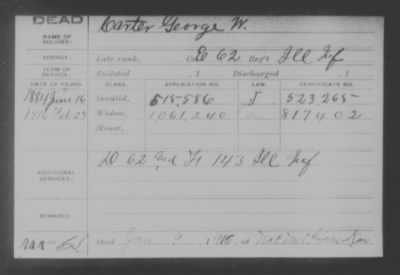 DEAD
Carter George W.
NAME OF SOLDIER:
SERVICE: Late rank, Co. E 62 Reg't Ill Inf
TERM OF SERVICE: Enlisted , 1 Discharged , 1
DATE OF FILING. CLASS. APPLICATION NO. LAW. CERTIFICATE NO.
June 16 Invalid, 515,586 523265
Widow, 1061,240 817402
Minor,
ADDITIONAL SERVICES: D 62 143 Ill Inf
REMARKS:
Died Jan 9 at